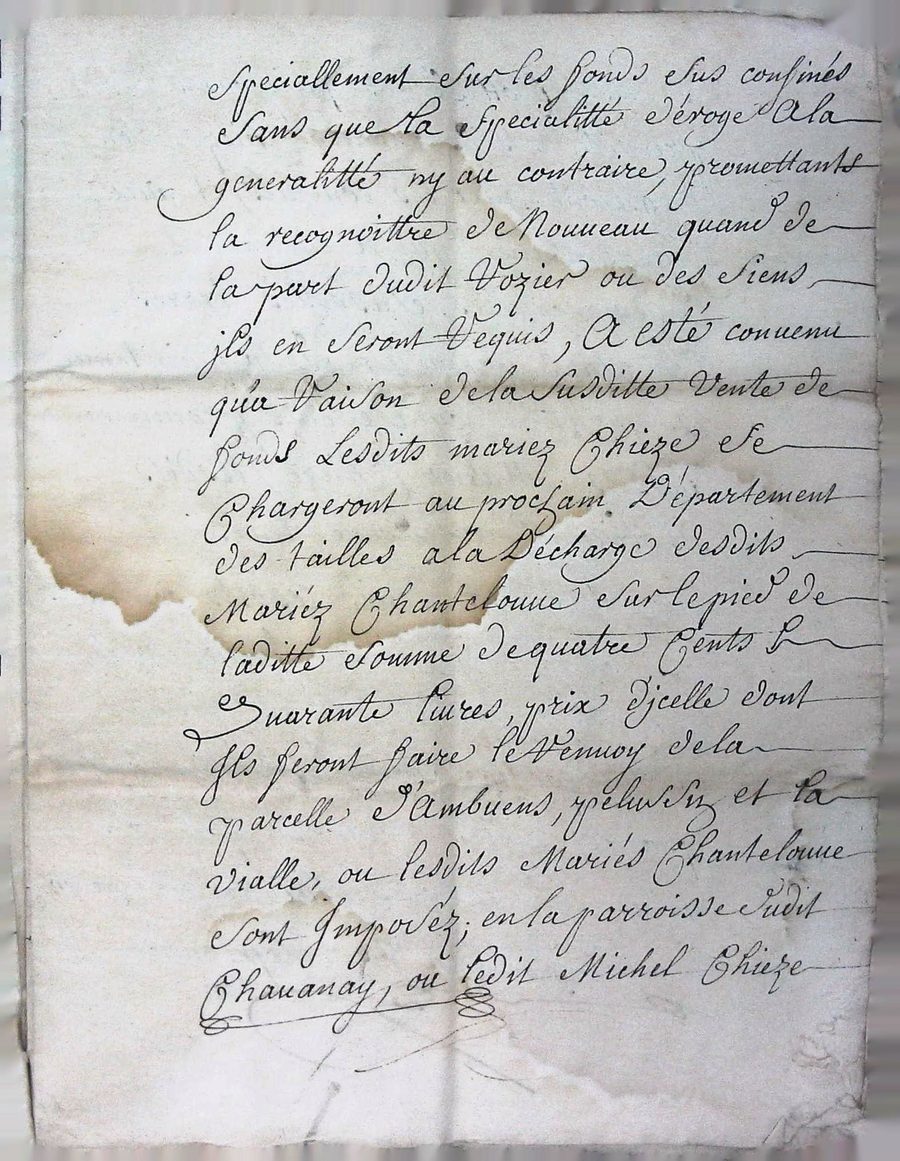 speciallement sur les fonds sus confinés
sans que la specialitté déroge a la
generalitté ny au contraire, promettants
la recognoittre de Nouueau quand de
la part dudit Vozier ou des siens
jls en seront Requis, A esté conuenu
qu'a Raison de la susditte Vente de
fonds Lesdits mariez Chieze se
Chargeront au prochain Département
des tailles a la Décharge desdits
Mariéz Chantelouue sur le pied de
laditte somme de quatre Cents
Quarante liures, prix d'jcelle dont
Jls feront faire le Renuoy de la
parcelle d'Ambuens, pelussin et la
vialle, ou lesdits Mariés Chantelouue
sont Jmposéz; en la parroisse dudit
Chauanay, ou ledit Michel Chieze